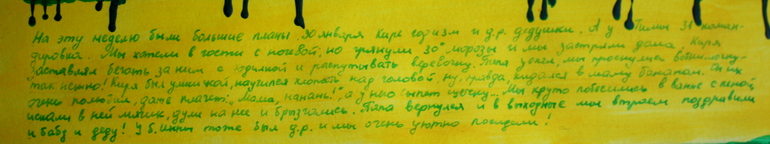 На эту неделю были большие планы. 30 января Кире год изм и д.р. дедушки. А у Тимы 31 коман-
дировка. Мы хотели в гости с ночевой, но грянули 30° морозы и мы застряли дома. Киря
заставлял бегать за ним с юдилкой и распутывать верёвочку. Тётя
так нежно! Киря был умницкой, научился хлопать над головой, ну, правда, кидался в маму бананом. Он их
очень полюбил, даже плачет: "Мама, нанань!", а у него сыпет щёчку... Мы круто побесились в ванне с пеной,
искали в ней мячик, дули на нее и брызгались. Папа вернулся и в вторые мы втроем поздравили
и бабу и деду! У б. Инны тоже был д.р. и мы очень уютно посидели!